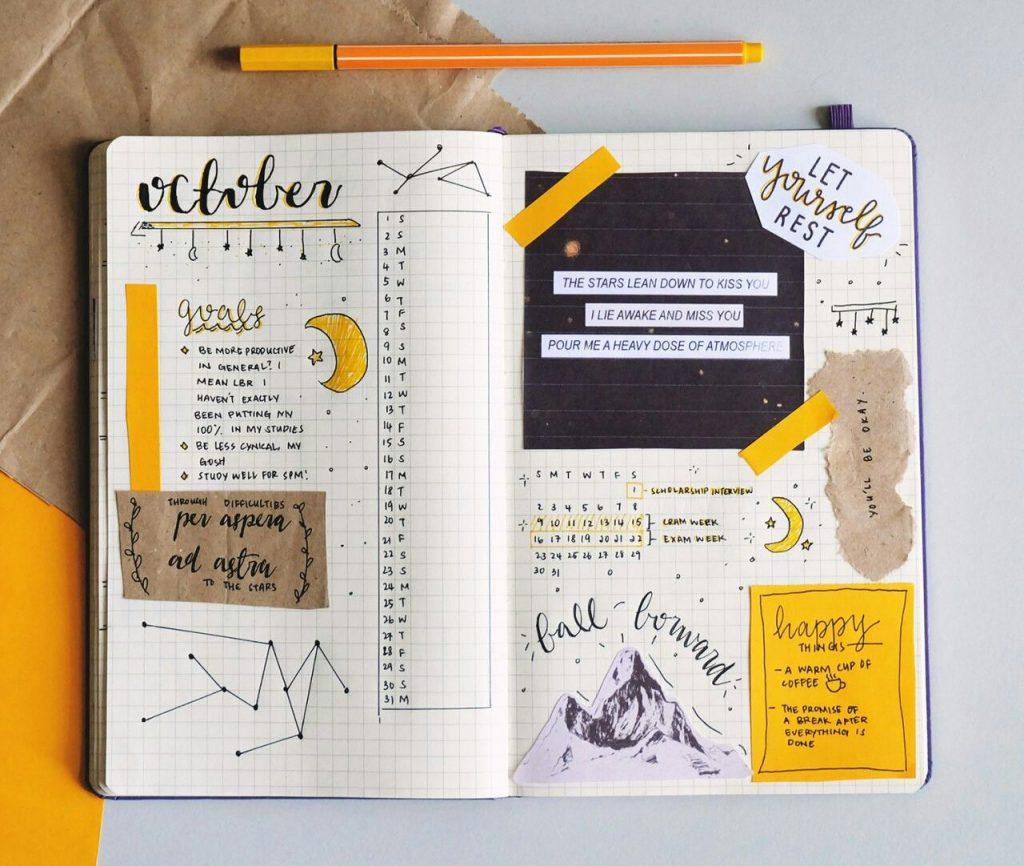 october
goals
BE MORE PRODUCTIVE
IN GENERAL? I
MEAN LBR I
HAVEN'T EXACTLY
BEEN PUTTING MY
100% IN MY STUDIES
BE LESS CYNICAL, MY
GOSH
STUDY WELL FOR SPM!
THROUGH DIFFICULTIES
per aspera
ad astra
TO THE STARS
1 S
2 S
3 M
4 T
5 W
6 T
7 F
8 S
9 S
10 M
11 T
12 W
13 T
14 F
15 S
16 S
17 M
18 T
19 W
20 T
21 F
22 S
23 S
24 M
25 T
26 W
27 T
28 F
29 S
30 S
31 M
LET
yourself
REST
THE STARS LEAN DOWN TO KISS YOU
I LIE AWAKE AND MISS YOU
POUR ME A HEAVY DOSE OF ATMOSPHERE
YOU'LL BE OKAY.
S M T W T F S
1 - SCHOLARSHIP INTERVIEW
2 3 4 5 6 7 8
9 10 11 12 13 14 15 CRAM WEEK
16 17 18 19 20 21 22 EXAM WEEK
23 24 25 26 27 28 29
30 31
fall forward
happy
THINGS
- A WARM CUP OF
COFFEE
- THE PROMISE OF
A BREAK AFTER
EVERYTHING IS
DONE